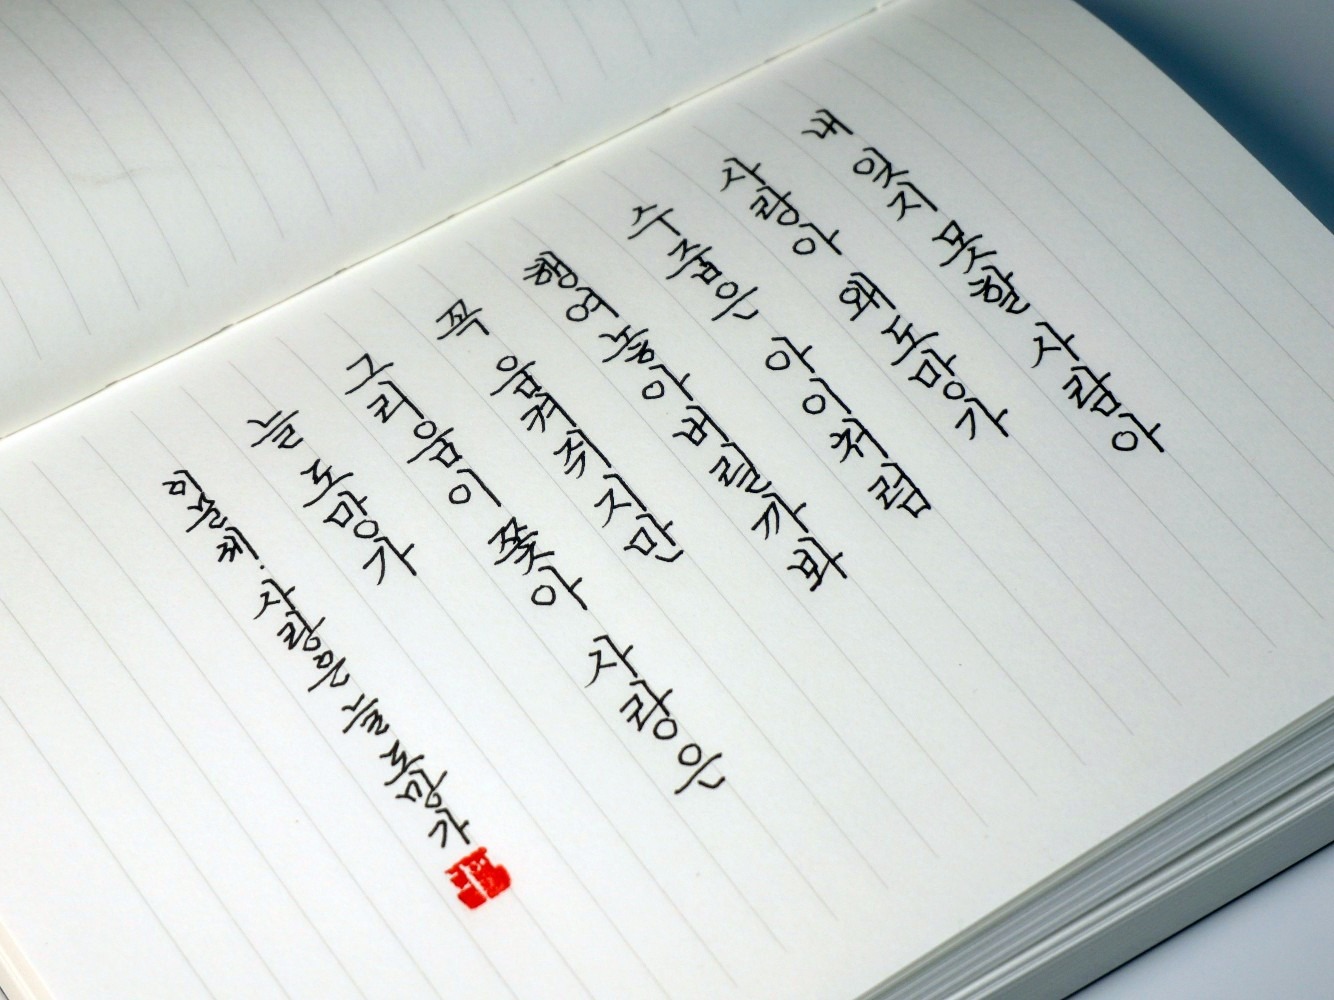 내 잊지 못할 사람아
사랑아 왜 도망가
수줍은 아이처럼
행여 놓아버릴까봐
꼭 움켜쥐지만
그리움이 쫓아 사랑은
늘 도망가
이문세. 사랑은 늘 도망가